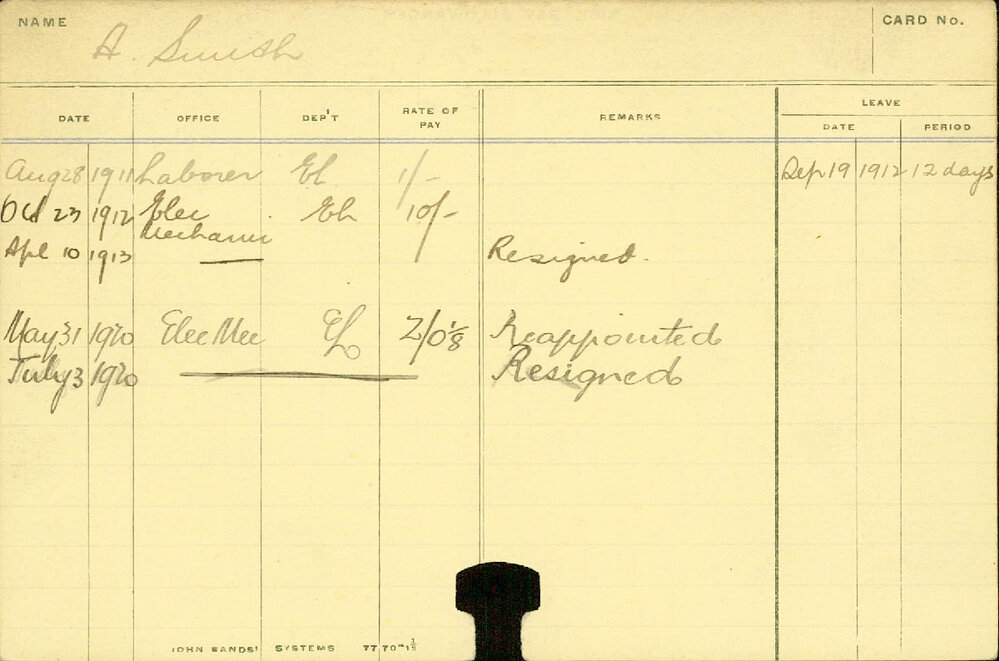 NAME
A. Smith
CARD No.
DATE OFFICE DEP'T RATE OF PAY REMARKS LEAVE
DATE PERIOD
Aug 28 1911 Laborer El 1/- Sep 19 1912 12 days
Oct 23 1912 Elec Mechanic El 10/-
Apl 10 1913 Resigned.
May 31 1920 Elec Mec El 2/0⅛ Reappointed
July 3 1920 Resigned
JOHN SANDS' SYSTEMS